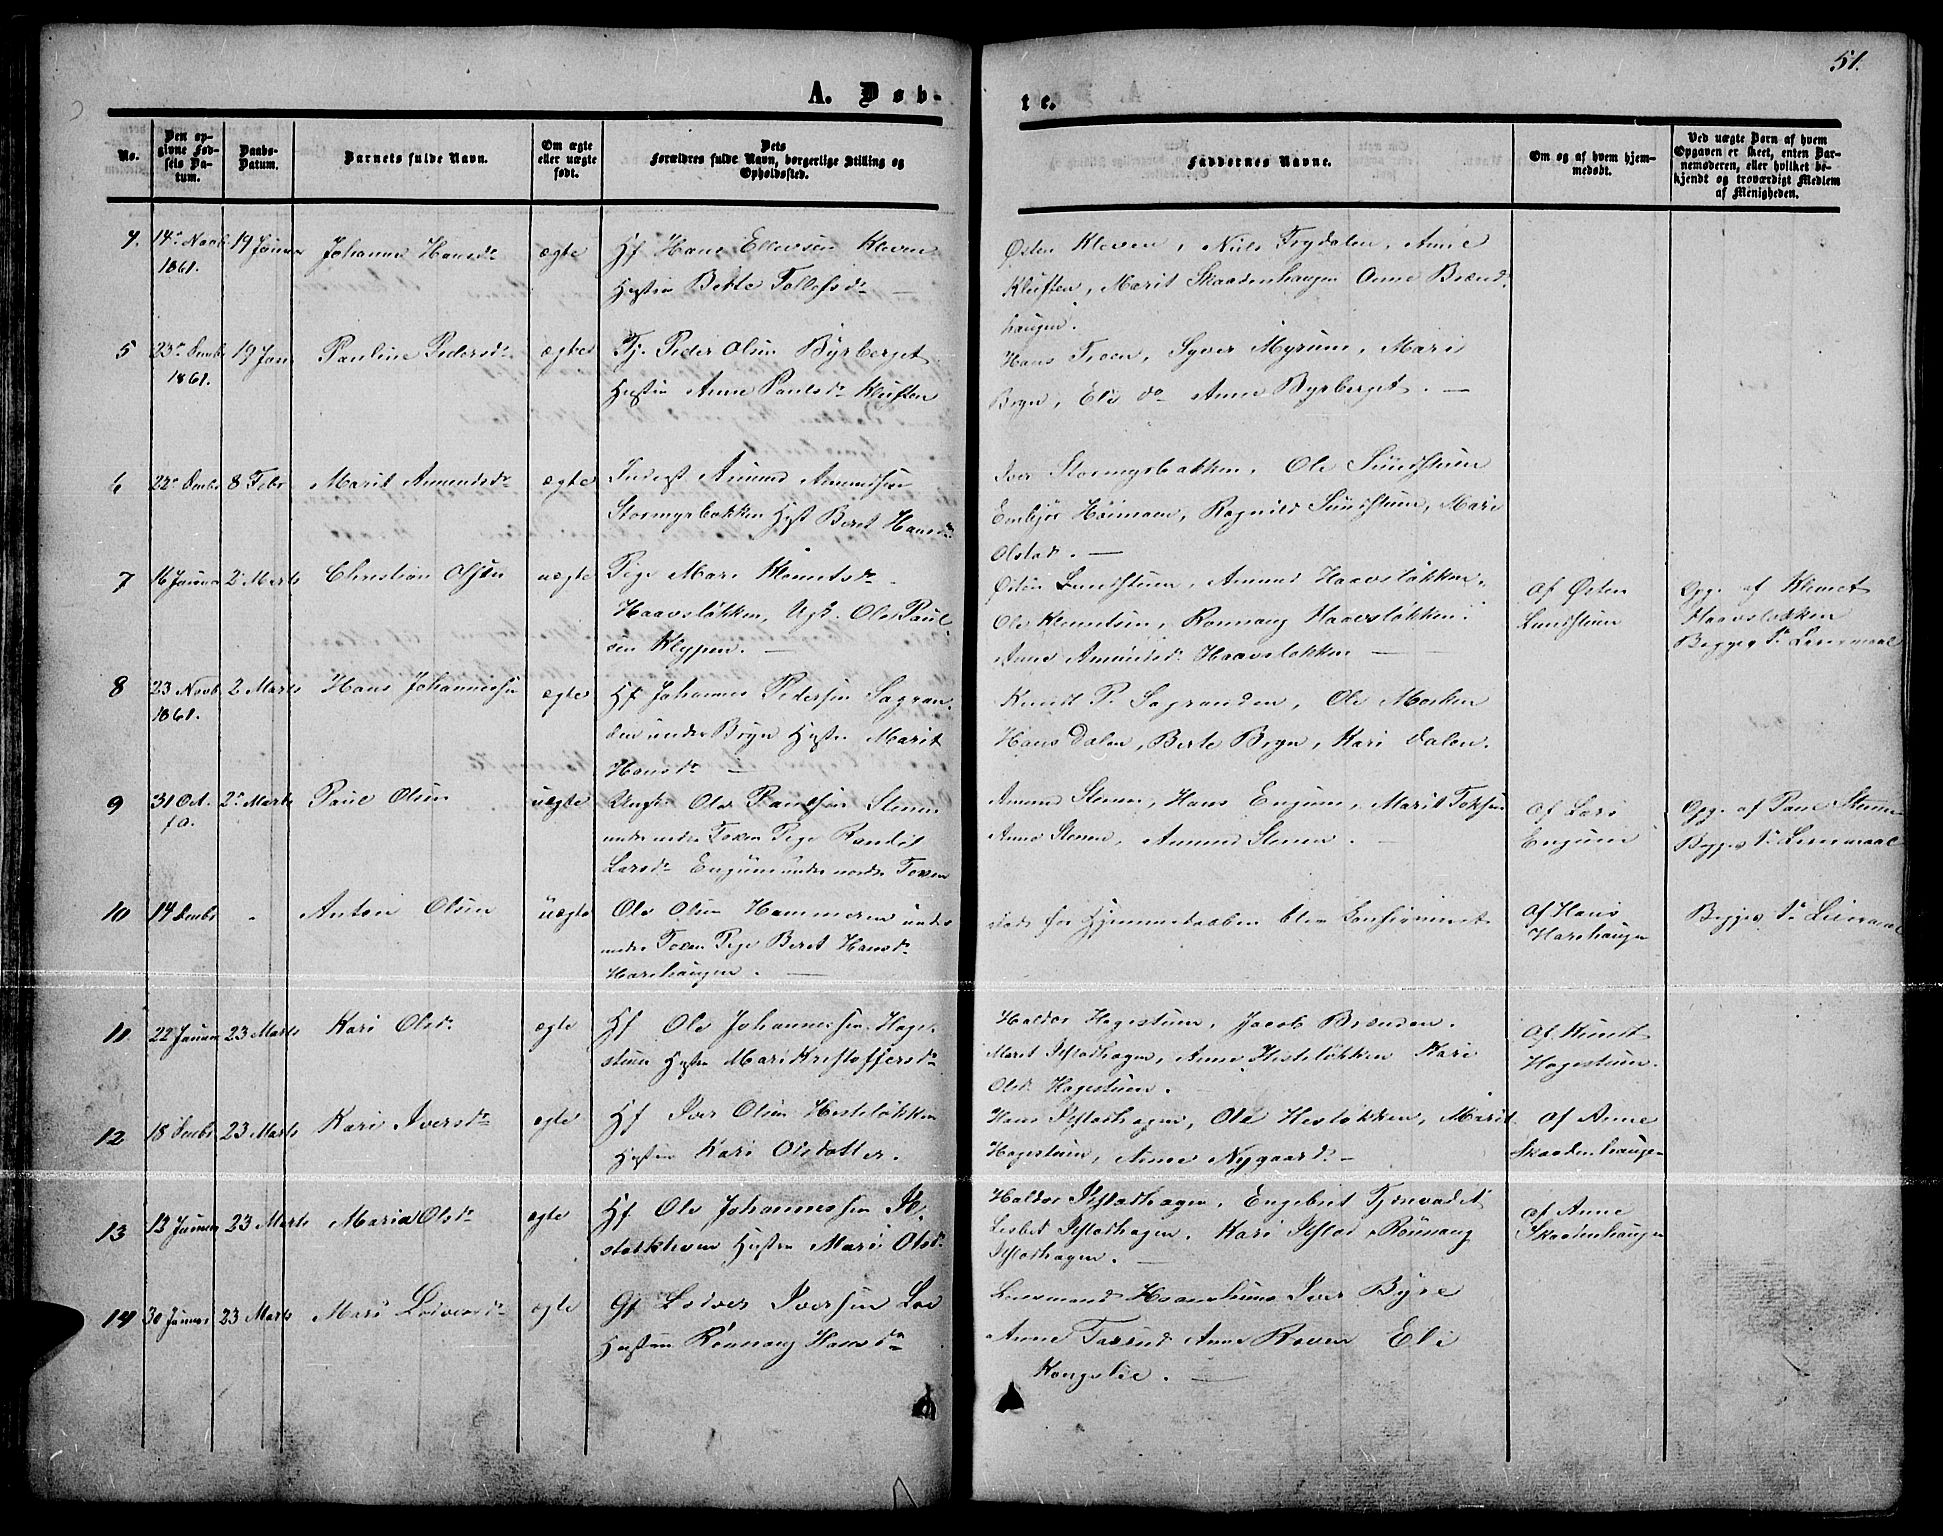 51.
A. Døb-
te.
No.
Den op-
givne Fød-
sels Da-
tum.
Daabs-
Datum.
Barnets fulde Navn.
Om ægte
eller uægte
født.
Dets
Forældres fulde Navn, borgerlige Stilling og
Opholdssted.
Faddernes Navne.
Om og af hvem hjem-
medøbt.
Ved uægte Børn af hvem
Opgaven er skeet, enten Bar-
nemoderen, eller hvilket be-
kjendt og troværdigt Medlem
af Menigheden.
4. 14de Novb 19 Januar Johanne Hansdr ægte Hf Hans Ellevsen Kleven
1861.
Hustru Berte Tollefsdr —
Østen Kleven, Niels Frydalen, Anne
Kluften, Marit Skaadenhaugen Anne Brænd-
haugen.
5 23de Decbr 19 Jan Pauline Pedersdr ægte Tj. Peder Olsen Byrberget
1861.
Hustru Anne Paulsdr Kluften
Hans Troen, Syver Myrum, Mari
Bryn, Eli do Anne Byrberget. —
6 22de Decbr 8 Febr Marit Amundsdr ægte Inderst Amund Amundsen
Stormyrbakken Hust Beret Hansdr
Iver Stormyrbakken, Ole Sundstuen
Embjør Høimoen, Ragnild Sundstuen, Mari
Olstad. —
7 16 Januar 2 Marts Christian Olsen uægte Pige Mari Klemetsdr
Haavsløkken, Ugk. Ole Paul-
sen Klyppen. —
Østen Lundstuen, Amund Haavsløkken,
Ole Klemetsen, Rønnaug Haavsløkken.
Anne Amundsdr Haavsløkken —
af Østen
Lundstuen
Opg. af Klemet
Haavsløkken
Begges 1ste Leiermaal
8 23 Novb 2 Marts Hans Johannessen ægte Hf Johannes Pedersen Sagran-
1861.
den under Bryn Hustru Marit
Hansdr —
Knud P. Sagranden, Ole Morken
Hans Dalen, Berte Bryn, Kari Dalen.
9 31 Oct. 2de Marts Paul Olsen uægte Ungk. Ole Paulsen Stenen
f.a.
under nedre Toxen Pige Randit
Larsdr Engum under nordre Toxen
Amund Stenen, Hans Engum, Marit Toksen
Anne Stenen, Amund Stenen. —
af Lars
Engum
Opg. af Paul Stenen
Begges 1ste Leiermaal
10 14 Decbr - Anton Olsen uægte Ole Olsen Hammeren under
nedre Toxen Pige Beret Hansdr
Harehaugen. —
døde før Hjemmedaaben blev Confirmeret
af Hans
Harehaugen
Begges 1ste Leiermaal
11 22 Januar 23 Marts Kari Olsdr ægte Hf Ole Johannessen Hage-
stuen Hustru Mari Kristoffersdr
Haldor Hagestuen, Jacob Brænden.
Marit Ilstadhagen, Anne Hesteløkken Kari
Olsd. Hagestuen.
af Knut
Hagestuen.
12 18 Decbr 23 Marts Kari Iversdr ægte Hf Iver Olsen Hesteløkken
Hustru Kari Olsdatter.
Hans Ilstadhagen, Ole Hesløkken, Marit
Hagestuen, Anne Nygaard. —
af Anne
Skaadenhaugen
13 12 Januar 23 Marts Maria Olsdr ægte Hf Ole Johannessen Il-
stadkleven Hustru Mari Olsdr
Haldor Ilstadhagen, Engebret Tjernvadet
Lisbet Ilstadhagen, Kari Ilstad, Rønnaug
Ilstadhagen. —
af Anne
Skaadenhaugen
14 30 Januar 23 Marts Mari Lodversdr ægte Gf Lodver Iversen Loe
Hustru Rønnaug Hansdr
Lensmand Haanstuen Iver Byre
Anne Toxrud Anne Roven Eli
Kongslie. —